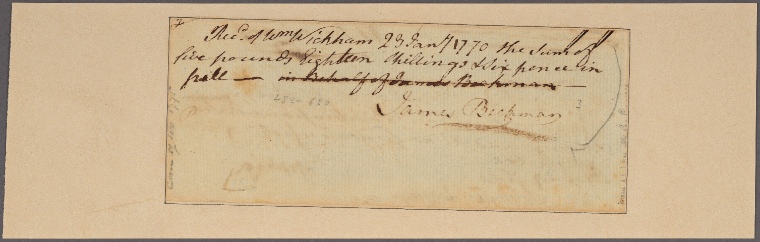 Rec.d of Wm Wickham 23 Jany 1770 the Sum of
five pounds Eighteen Shillings & Six pence in
full — in Behalf of James Beekman —
James Beekman